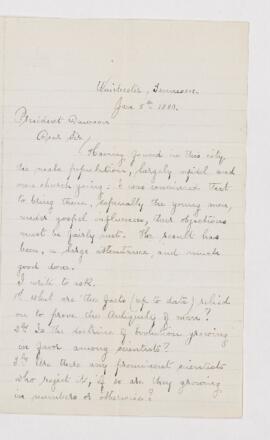 Winchester, Tennessee.
Jan 5th 1880.
President Dawson
Dear Sir,
Having found in this city
the male population, largely infidel and
non church going: I was convinced that
to bring them, especially the young men,
under gospel influences, their objections
must be fairly met. The result has
been, a large attendance, and much
good done.
I write to ask.
1st What are the facts (up to date) relied
on to prove the Antiquity of man?
2nd Is the doctrine of Evolution growing
in favor among scientists?
3rd Are there any prominent scientists
who reject it, if so are they growing
in numbers or otherwise?